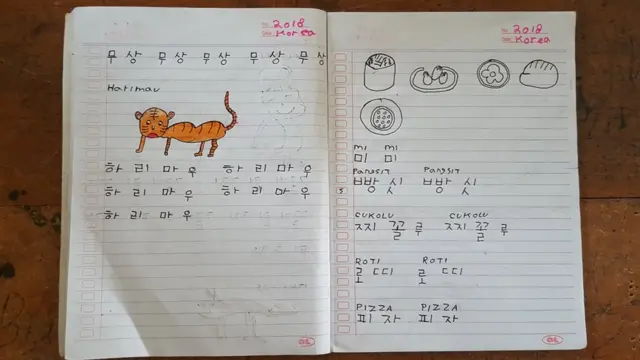 2018
Korea
무상 무상 무상 무상 무상
Harimau
하 리 마 우 하 리 마 우
하 리 마 우 하 리 마 우
하 리 마 우
2018
Korea
mi mi
미 미
Pangsit Pangsit
빵 싯 빵 싯
CUKOLU CUKOLU
찌 꼴 루 찌 꼴 루
ROTI ROTI
로 띠 로 띠
PIZZA PIZZA
피 자 피 자